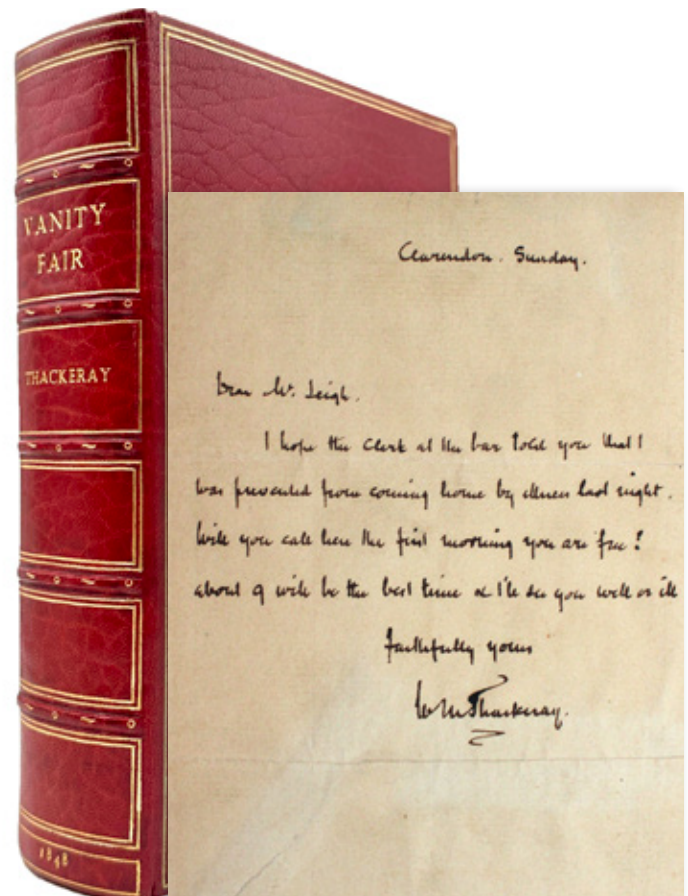 VANITY
FAIR
THACKERAY
1848
Clarendon. Sunday.
Dear Mr. Leigh.
I hope the Clerk at the bar told you that I
was prevented from coming home by illness last night.
Will you call here the first morning you are free?
about 9 will be the best time & I'll see you well or ill
Faithfully yours
W M Thackeray.